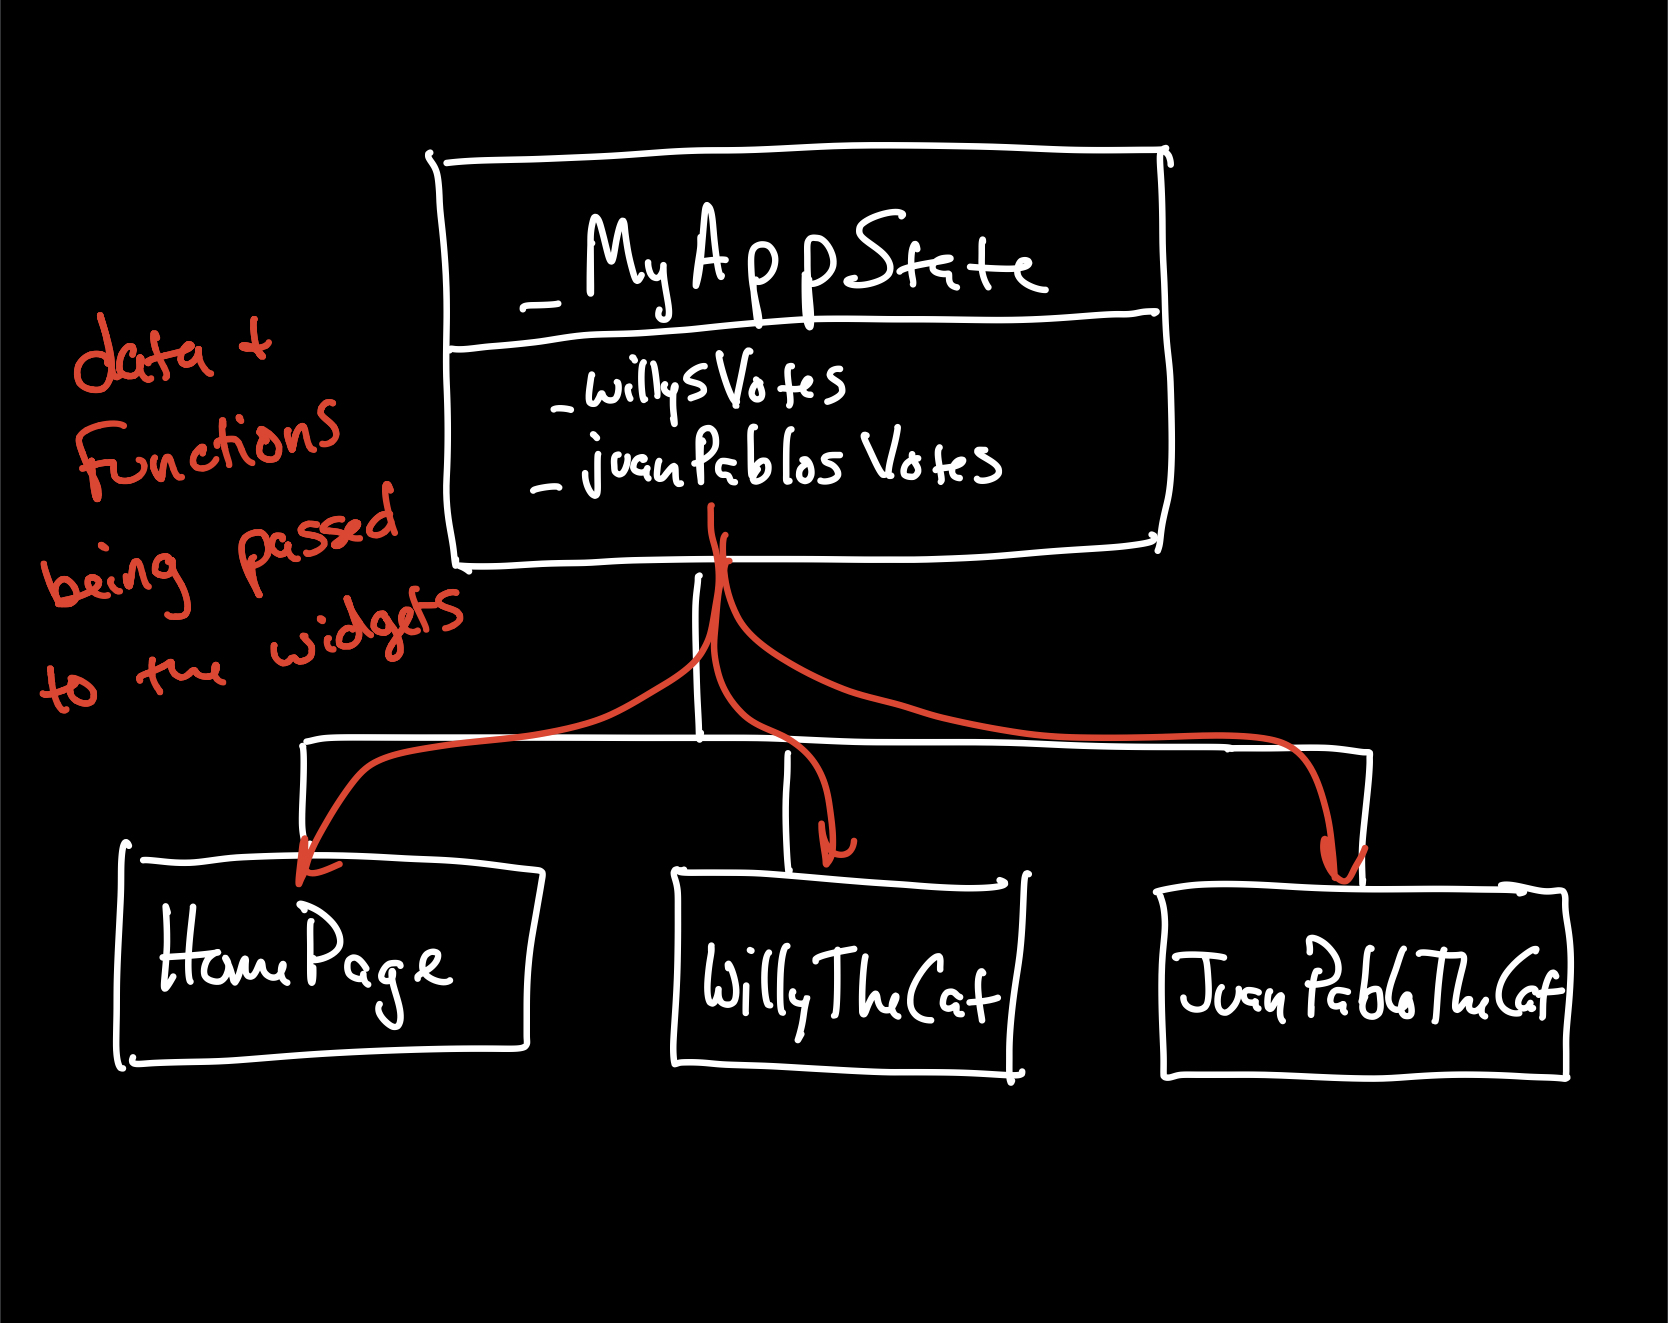 _MyAppState
_willysVotes
_juanPablosVotes
data +
Functions
being passed
to the widgets
HomePage
WillyTheCat
JuanPabloTheCat